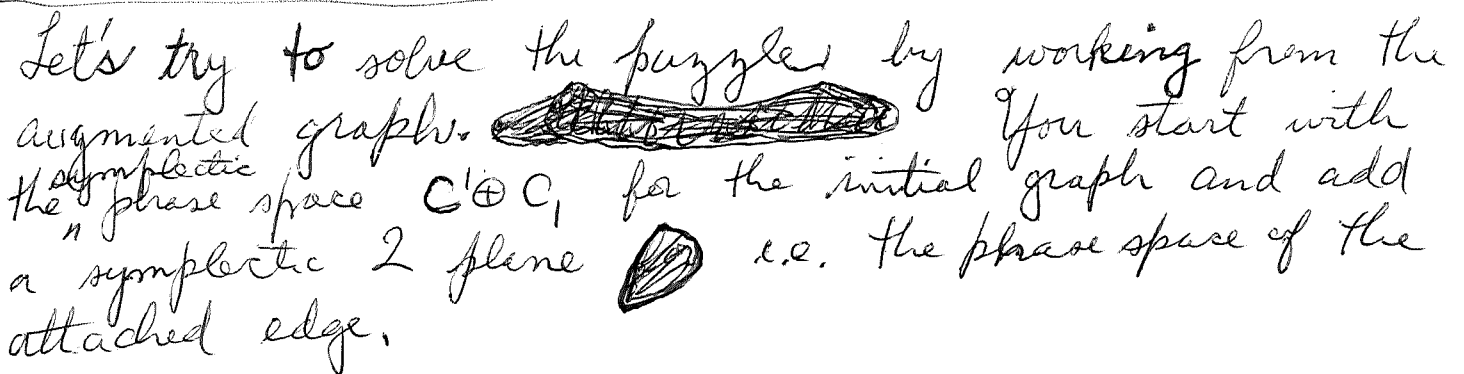 Let's try to solve the puzzles by working from the
augmented graph. You start with
the symplectic phase space C¹⊕C₁ for the initial graph and add
a symplectic 2 plane i.e. the phase space of the
attached edge.